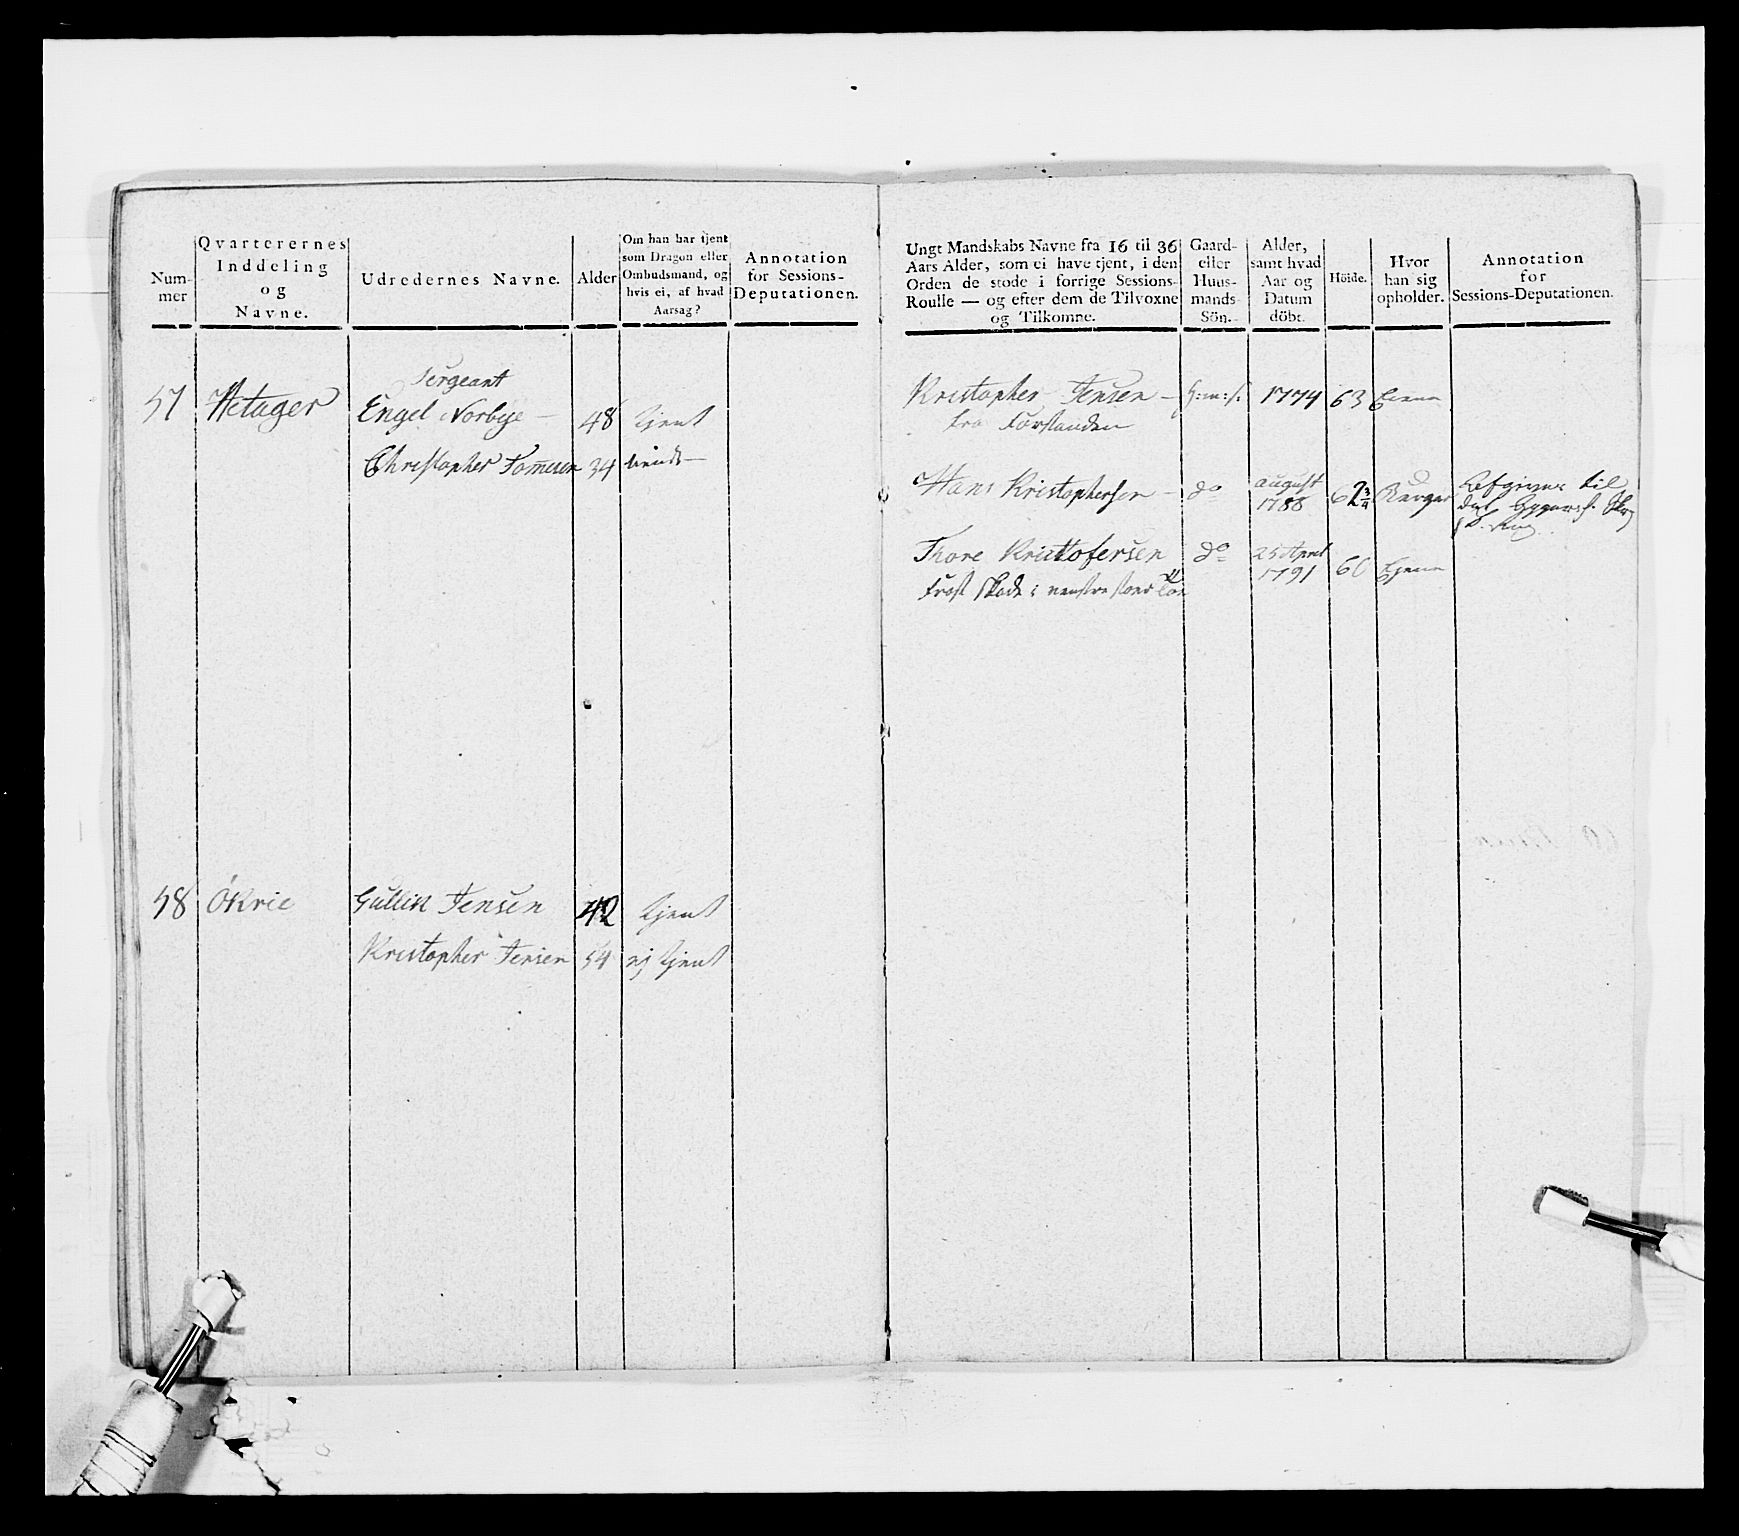 Num-
mer
Qvarterernes
Inddeling
og
Navne.
Udredernes Navne.
Alder
Om han har tjent
som Dragon eller
Ombudsmand, og
hvis ei, af hvad
Aarsag?
Annotation
for Sessions-
Deputationen.
57 Hetager Sergeant
Engel Norbye — 48 tjent
Christopher Tomesen 34
58 Økrie Gullik Jensen 42 tjent
Kristopher Jensen 54 ej tjent
Ungt Mandskabs Navne fra 16 til 36
Aars Alder, som ei have tjent, i den
Orden de stode i forrige Sessions-
Roulle — og efter dem de Tilvoxne
og Tilkomne.
Gaard-
eller
Huus-
mands-
Sön.
Alder,
samt hvad
Aar og
Datum
döbt.
Höide.
Hvor
han sig
opholder.
Annotation
for
Sessions-Deputationen.
Kristopher Jensen — h:m:s. 1774 63
fra Forstanden
Hans Kristophersen — do august 1788 62 3/4 Afgiven til
Thore Kristofersen do 25 April 1791 60
frost skade i venstre stoer Toe